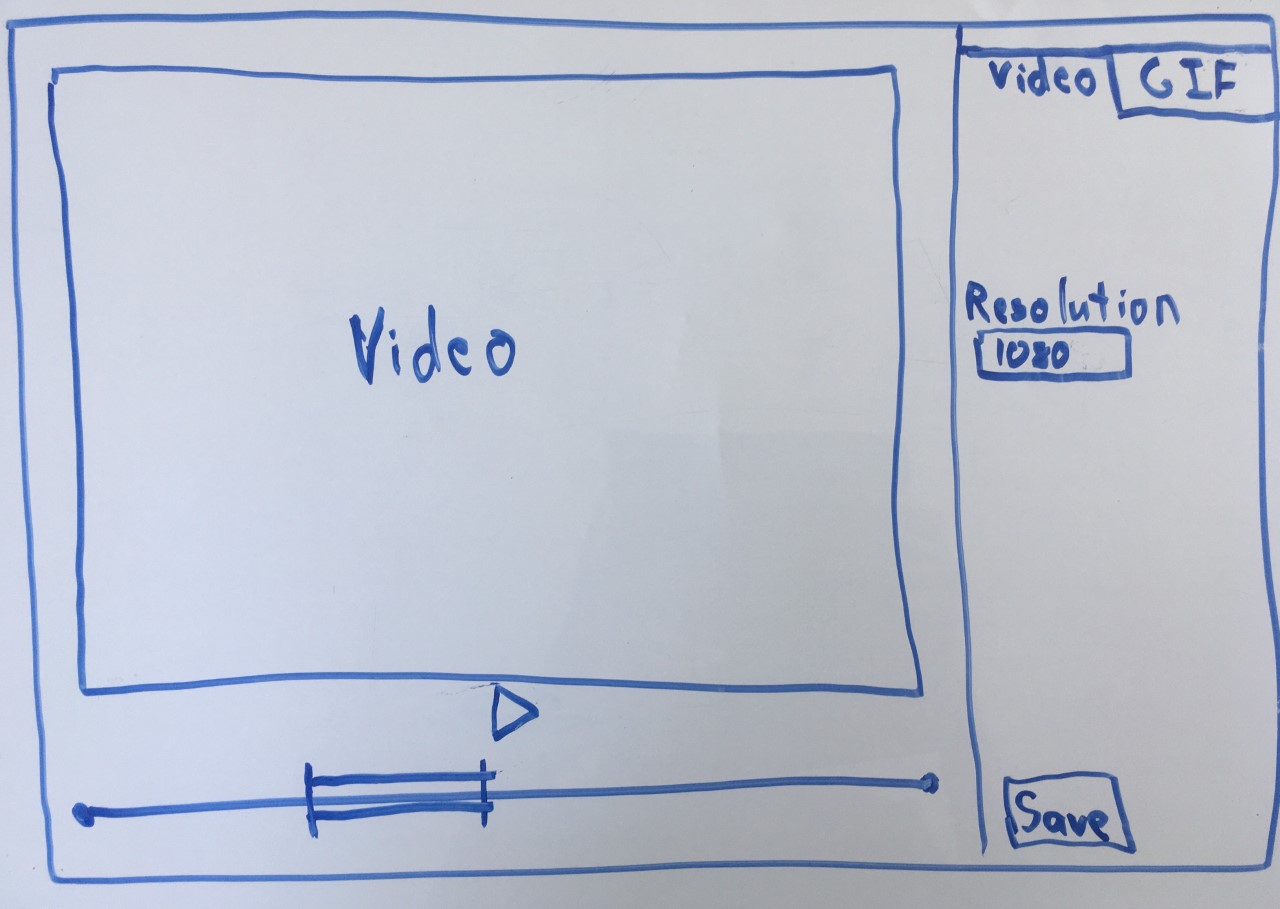 Video GIF
Video
Resolution
1080
Save